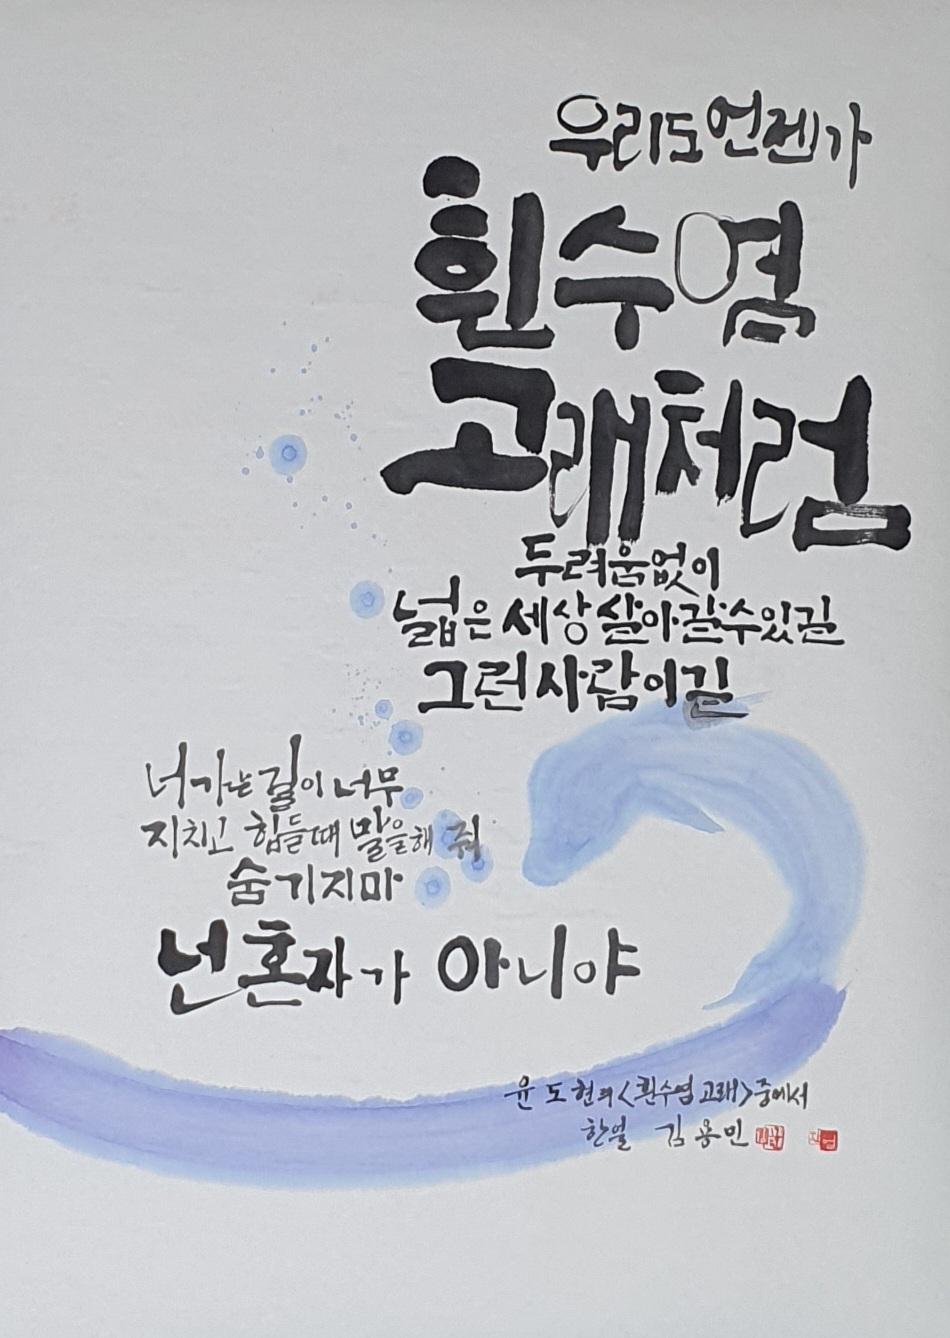 우리도 언젠가
흰수염
고래처럼
두려움 없이
넓은 세상 살아 갈 수 있길
그런 사람이길
너 가는 길이 너무
지치고 힘들 때 말을 해 줘
숨기지마
넌 혼자가 아니야
윤도현의 <흰수염 고래> 중에서
한얼 김용민